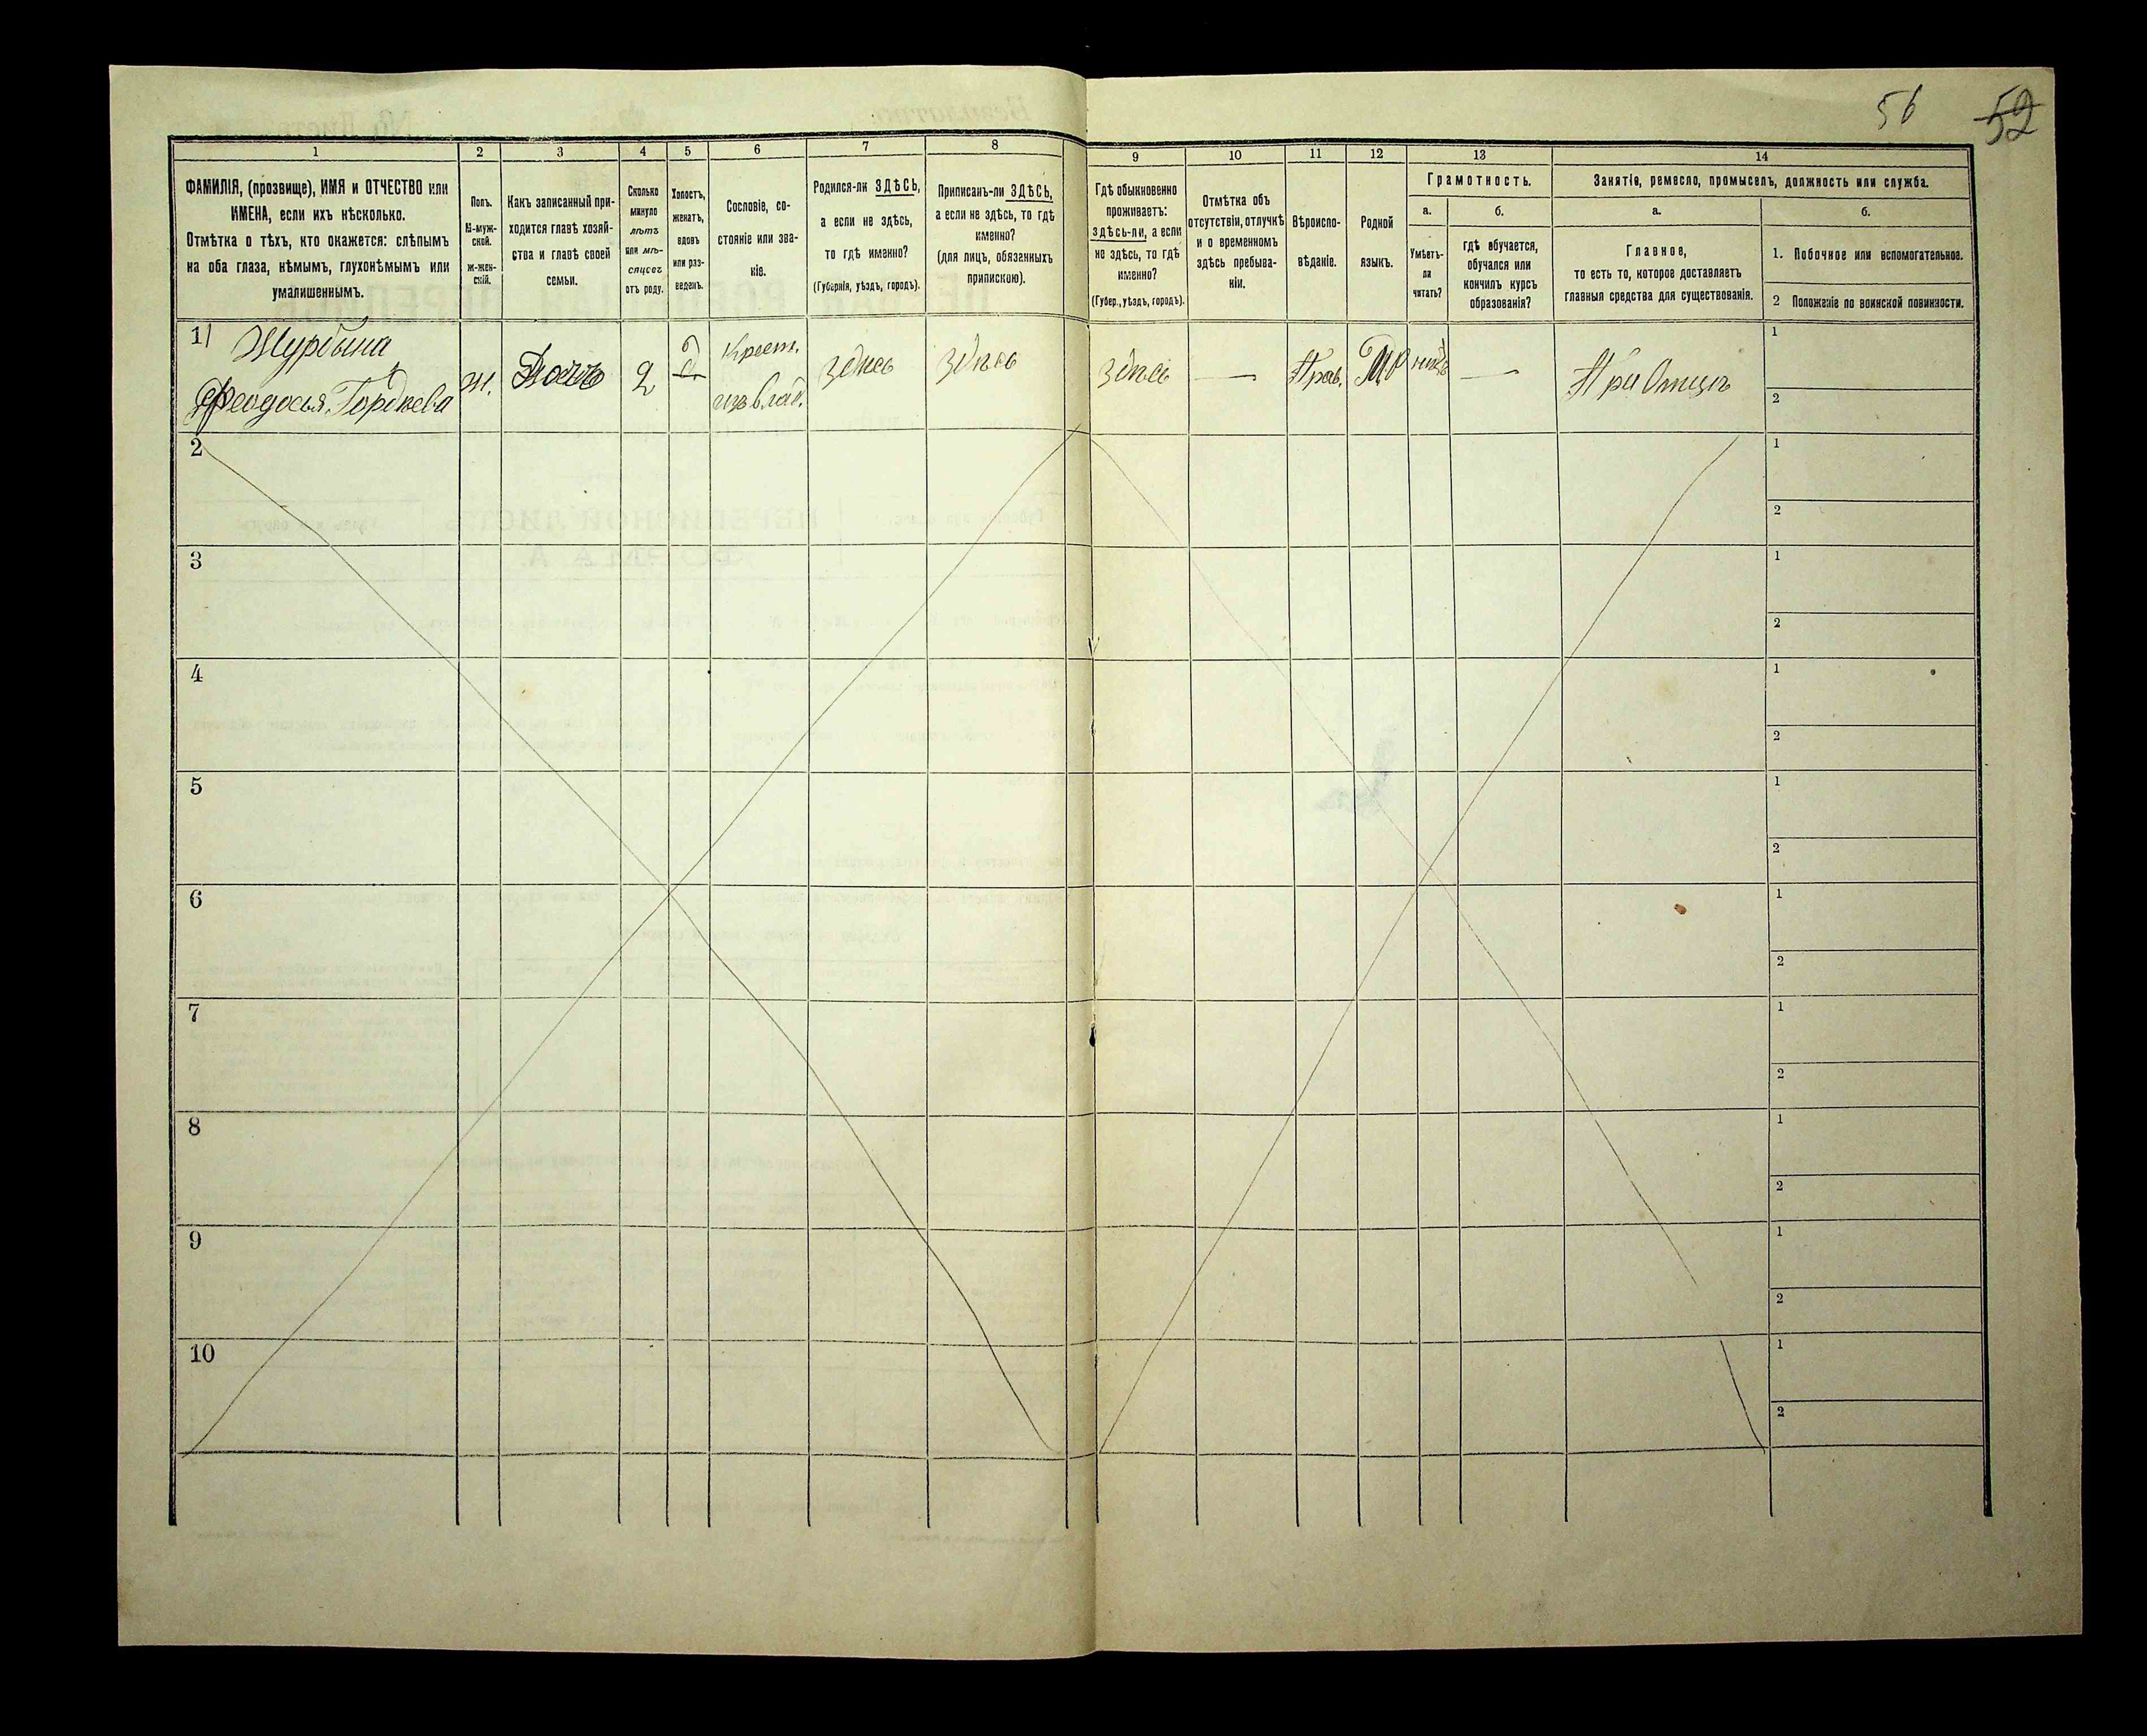 56 52
1 2 3 4 5 6 7 8 9 10 11 12 13 14
ФАМИЛІЯ, (прозвище), ИМЯ и ОТЧЕСТВО или
ИМЕНА, если ихъ нѣсколько.
Отмѣтка о тѣхъ, кто окажется: слѣпымъ
на оба глаза, нѣмымъ, глухонѣмымъ или
умалишеннымъ.
Полъ.
М-муж-
ской.
Ж-жен-
скій.
Какъ записанный при-
ходится главѣ хозяй-
ства и главѣ своей
семьи.
Сколько
минуло
лѣтъ
или мѣ-
сяцевъ
отъ роду.
Холостъ,
женатъ,
вдовъ
или раз-
веденъ.
Сословіе, со-
стояніе или зва-
ніе.
Родился-ли ЗДѢСЬ,
а если не здѣсь,
то гдѣ именно?
(Губернія, уѣздъ, городъ).
Приписанъ-ли ЗДѢСЬ,
а если не здѣсь, то гдѣ
именно?
(для лицъ, обязанныхъ
припискою).
Гдѣ обыкновенно
проживаетъ:
ЗДѢСЬ-ли, а если
не здѣсь, то гдѣ
именно?
(Губер., уѣздъ, городъ).
Отмѣтка объ
отсутствіи, отлучкѣ
и о временномъ
здѣсь пребыва-
ніи.
Вѣроиспо-
вѣданіе.
Родной
языкъ.
Грамотность.
а. б.
Умѣетъ-
ли
читать?
гдѣ обучается,
обучался или
кончилъ курсъ
образованія?
Занятіе, ремесло, промыселъ, должность или служба.
а. б.
Главное,
то есть то, которое доставляетъ
главныя средства для существованія.
1. Побочное или вспомогательное.
2 Положеніе по воинской повинности.
1
Феодосья Гордѣева
ж. Дочь 2 Д Крест.
изъ влад. здѣсь здѣсь здѣсь — Прав. нѣтъ — При Отцѣ
1
2
2
1
2
3
1
2
4
1
2
5
1
2
6
1
2
7
1
2
8
1
2
9
1
2
10
1
2